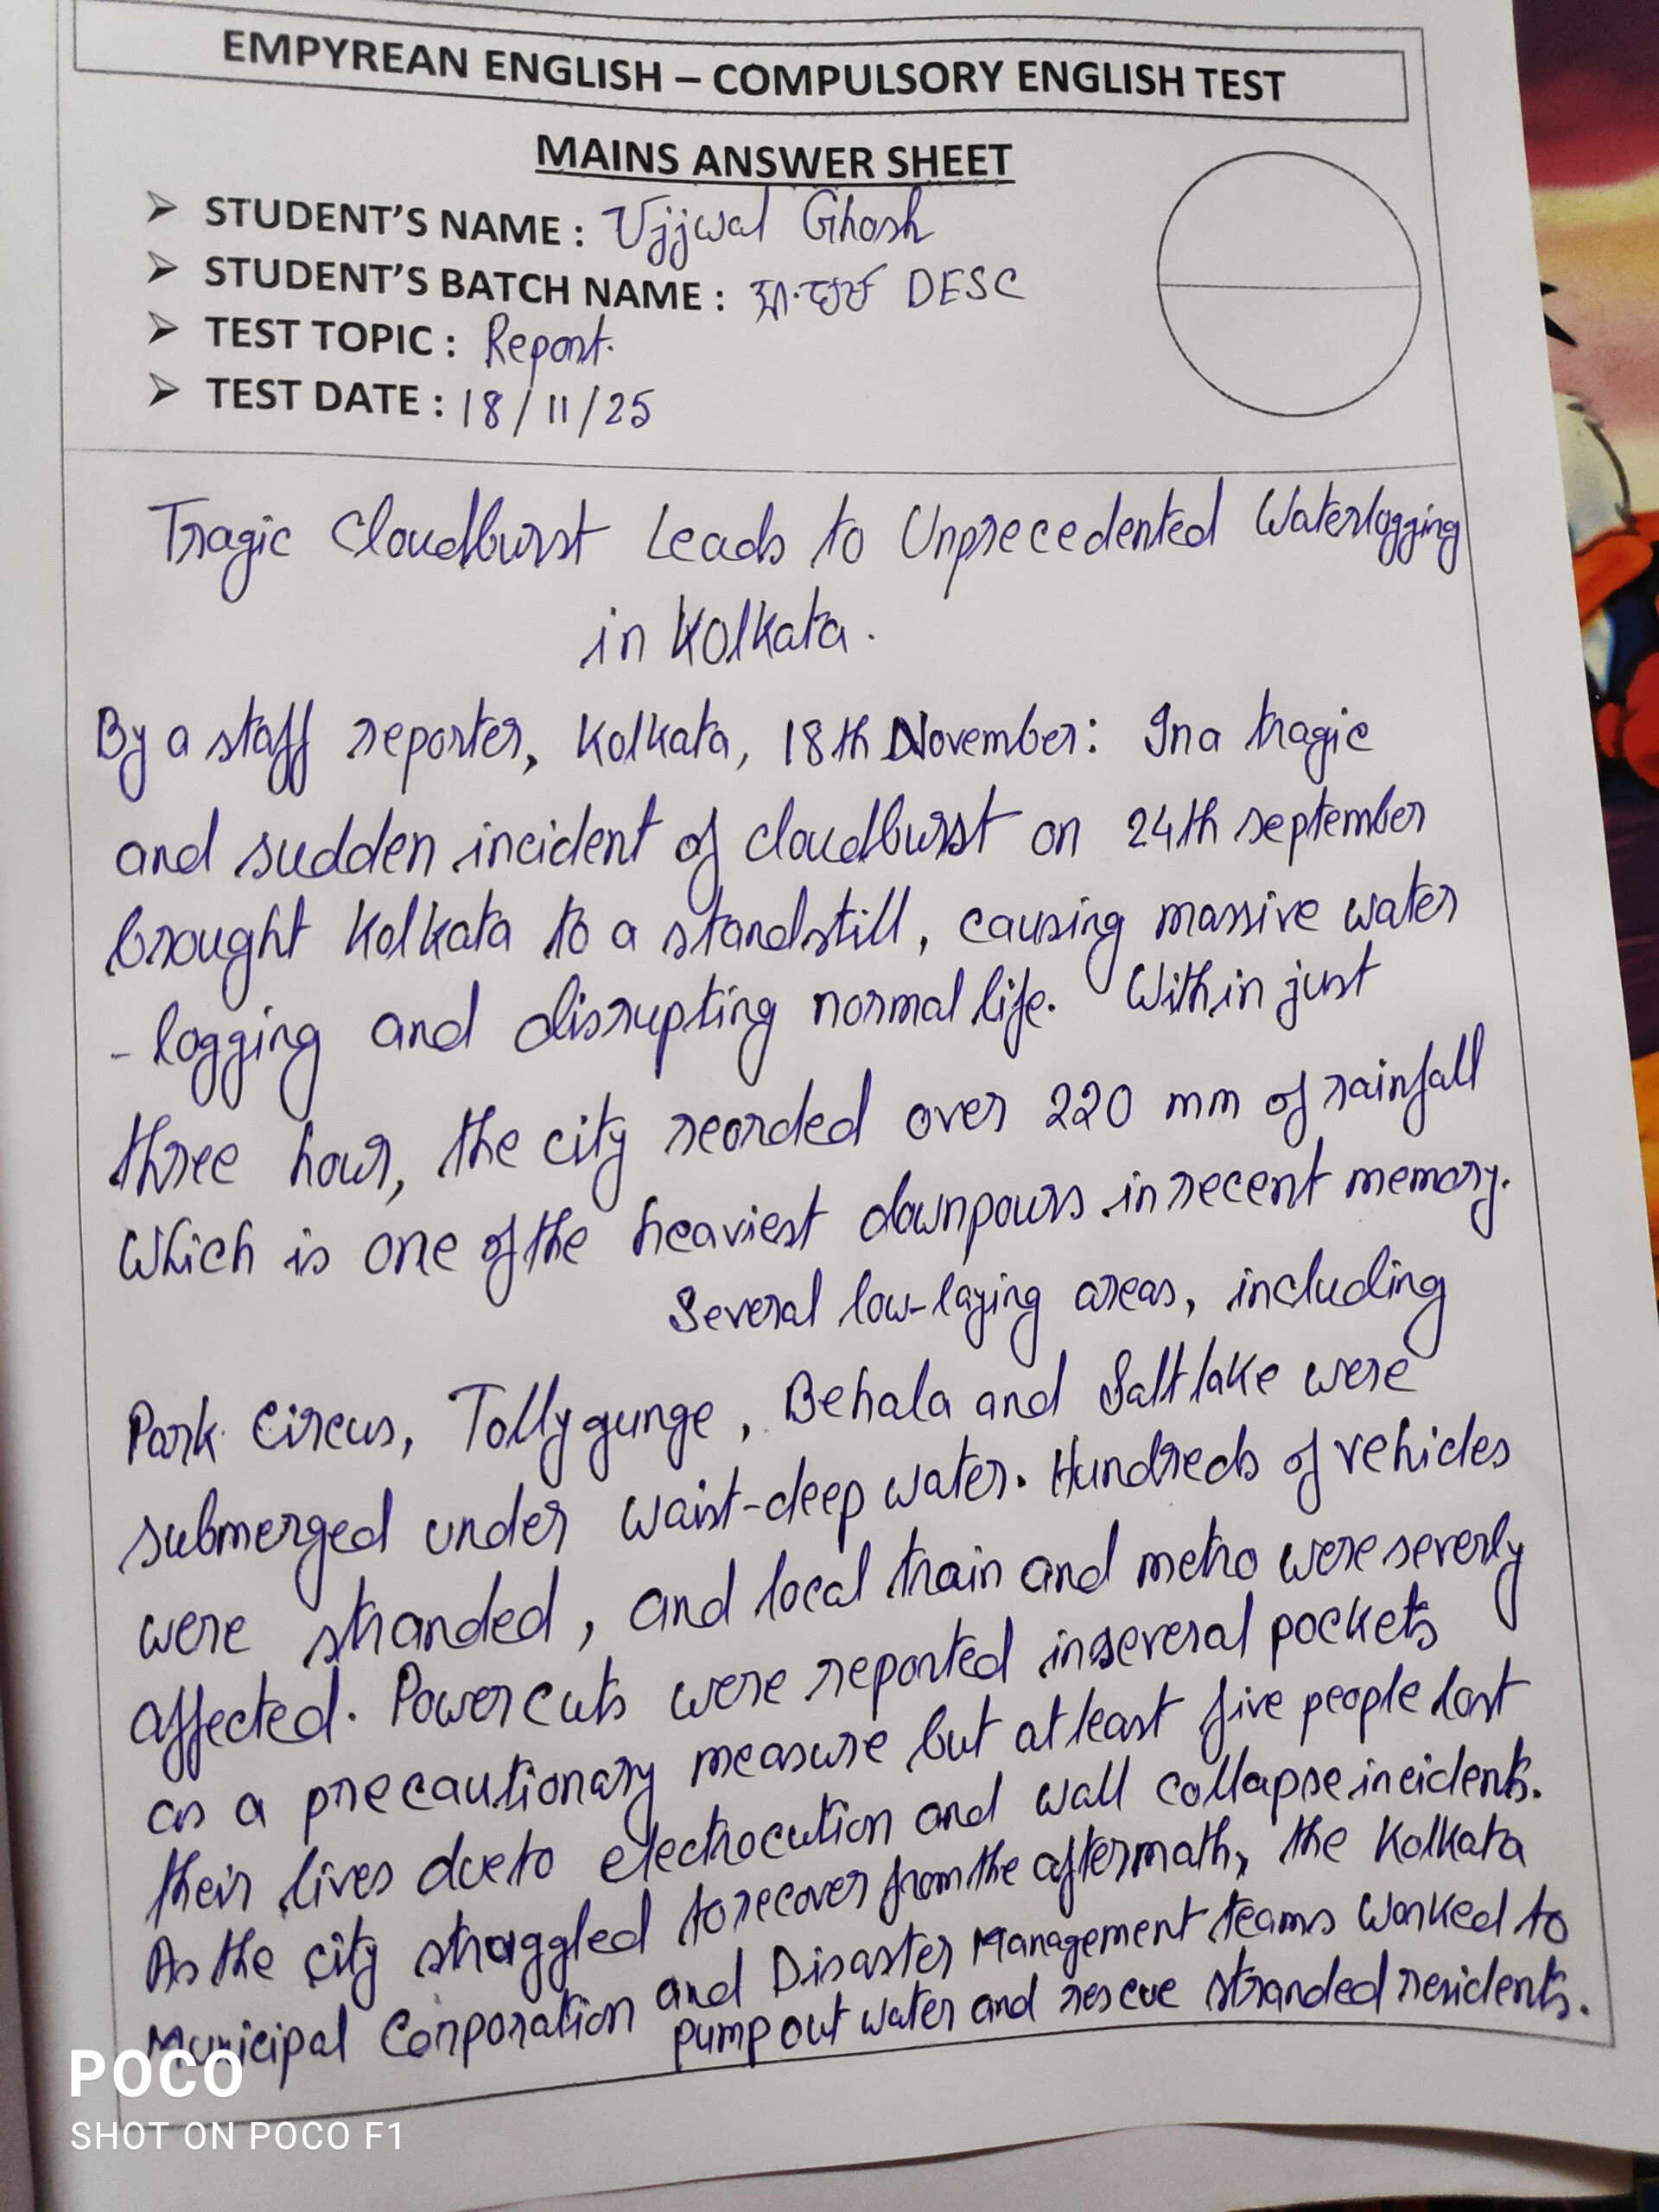 EMPYREAN ENGLISH – COMPULSORY ENGLISH TEST
MAINS ANSWER SHEET
➢ STUDENT'S NAME : Ujjwal Ghosh
➢ STUDENT'S BATCH NAME : DESC
➢ TEST TOPIC : Report.
➢ TEST DATE : 18/11/25
Tragic Cloudburst Leads to Unprecedented Waterlogging
in Kolkata.
By a staff reporter, Kolkata, 18th November: In a tragic
and sudden incident of cloudburst on 24th september
brought Kolkata to a standstill, causing massive water
- logging and disrupting normal life. Within just
three hour, the city recorded over 220 mm of rainfall
Which is one of the heaviest downpours in recent memory.
Several low-laying areas, including
Park Circus, Tollygunge, Behala and Salt lake were
submerged under waist-deep water. Hundreds of vehicles
were stranded, and local train and metro were severly
affected. Power cuts were reported in several pockets
as a precautionary measure but at least five people lost
their lives due to electrocution and wall collapse incidents.
As the city struggled to recover from the aftermath, the Kolkata
Municipal Corporation and Disaster Management teams worked to
pump out water and rescue stranded residents.
POCO
SHOT ON POCO F1